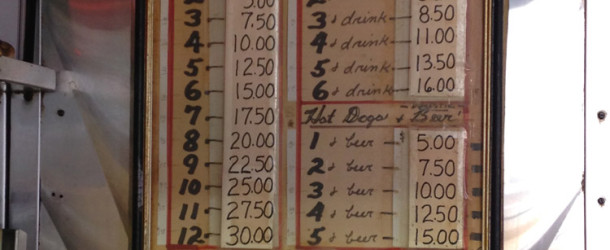 2 - 5.00
3 - 7.50
4 - 10.00
5 - 12.50
6 - 15.00
7 - 17.50
8 - 20.00
9 - 22.50
10 - 25.00
11 - 27.50
12 - 30.00
3 & drink - 8.50
4 & drink - 11.00
5 & drink - 13.50
6 & drink - 16.00
Hot Dogs & Beer
1 & beer - 5.00
2 & beer - 7.50
3 & beer - 10.00
4 & beer - 12.50
5 & beer - 15.00